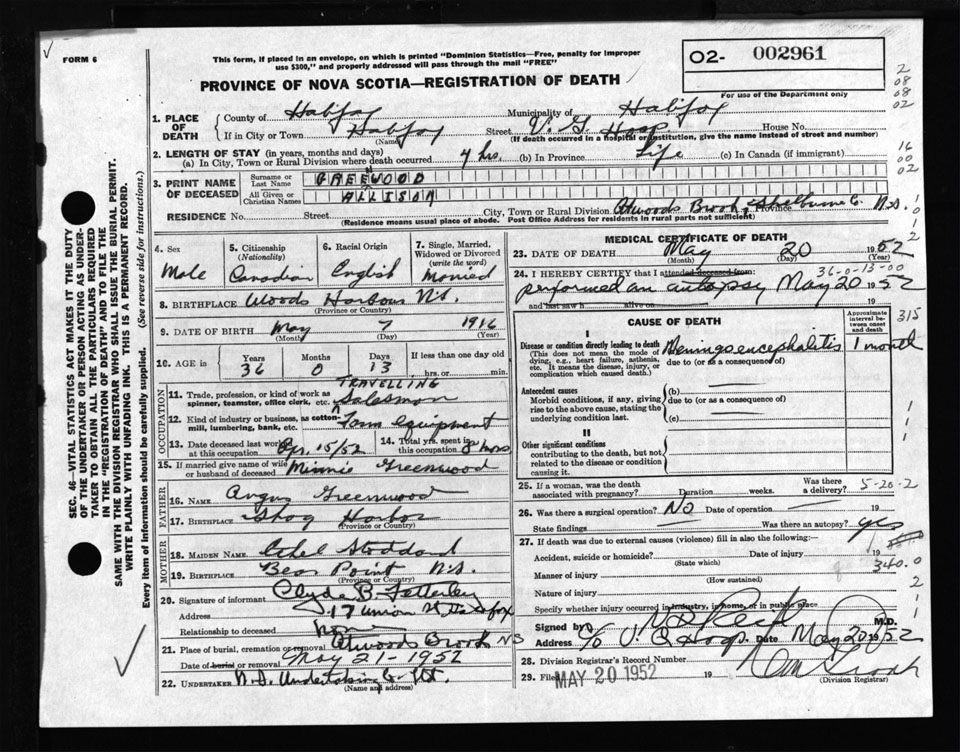 FORM 6
This form, if placed in an envelope, on which is printed "Dominion Statistics—Free, penalty for improper
use $300," and properly addressed will pass through the mail "FREE"
PROVINCE OF NOVA SCOTIA—REGISTRATION OF DEATH
O2- 002961
For use of the Department only
1. PLACE OF DEATH
County of Halifax Municipality of Halifax
If in City or Town Halifax Street V. G. Hosp. House No.
(Name) (If death occurred in a hospital or institution, give the name instead of street and number)
2. LENGTH OF STAY (in years, months and days)
(a) In City, Town or Rural Division where death occurred 4 hrs. (b) In Province Life (c) In Canada (if immigrant)
3. PRINT NAME OF DECEASED
Surname or Last Name GREEWOOD
N
All Given or Christian Names ALLISON
RESIDENCE No. Street City, Town or Rural Division Atwoods Brook, Shelburne Co. Province N.S.
(Residence means usual place of abode. Post Office Address for residents in rural parts not sufficient)
4. Sex Male
5. Citizenship (Nationality) Canadian
6. Racial Origin English
7. Single, Married, Widowed or Divorced (write the word) Married
8. BIRTHPLACE Woods Harbour N.S.
(Province or Country)
9. DATE OF BIRTH May 7 1916
(Month) (Day) (Year)
10. AGE Years 36 Months 0 Days 13 If less than one day old hrs. or min.
OCCUPATION
11. Trade, profession, or kind of work as spinner, teamster, office clerk, etc. TRAVELLING Salesman
12. Kind of industry or business, as cotton mill, lumbering, bank, etc. Farm equipment
13. Date deceased last worked at this occupation Apr. 15/52
14. Total yrs. spent in this occupation
15. If married give name of wife or husband of deceased Minnie Greenwood
FATHER
16. NAME Angus Greenwood
17. BIRTHPLACE Shag Harbor
(Province or Country)
MOTHER
18. MAIDEN NAME Ethel Stoddard
19. BIRTHPLACE Bear Point N.S.
(Province or Country)
20. Signature of informant Clyde B. Fetterley
Address 17 Union St Halifax
Relationship to deceased None
21. Place of burial, cremation or removal Atwoods Brook NS
Date of burial or removal May 21 - 1952
22. UNDERTAKER N.S. Undertaking Co.
(Name and address)
MEDICAL CERTIFICATE OF DEATH
23. DATE OF DEATH May 20 1952
(Month) (Day) (Year)
36-0-13-00
24. I HEREBY CERTIFY that I attended deceased from:
performed an autopsy May 20 1952
and last saw h alive on 19
CAUSE OF DEATH
Approximate interval between onset and death
315
I
Disease or condition directly leading to death Meningoencephalitis 1 month
(This does not mean the mode of dying, e.g., heart failure, asthenia, etc. It means the disease, injury, or complication which caused death.)
due to (or as a consequence of)
Antecedent causes (b)
Morbid conditions, if any, giving rise to the above cause, stating the underlying condition last.
due to (or as a consequence of)
(c)
II
Other significant conditions
contributing to the death, but not related to the disease or condition causing it.
25. If a woman, was the death associated with pregnancy? Duration weeks. Was there a delivery?
5-20-2
26. Was there a surgical operation? No Date of operation 19
State findings Was there an autopsy? yes
27. If death was due to external causes (violence) fill in also the following:—
Accident, suicide or homicide? Date of injury 19
(State which)
340.0
Manner of injury
(How sustained)
Nature of injury
Specify whether injury occurred in industry, in home, or in public place
Signed by M.D.
Address c/o V. G. Hosp. Date May 20 1952
28. Division Registrar's Record Number
29. Filed MAY 20 1952 19
(Division Registrar)
SEC. 46—VITAL STATISTICS ACT MAKES IT THE DUTY
OF THE UNDERTAKER OR PERSON ACTING AS UNDER-
TAKER TO OBTAIN ALL THE PARTICULARS REQUIRED
IN THE "REGISTRATION OF DEATH" AND TO FILE THE
SAME WITH THE DIVISION REGISTRAR WHO SHALL ISSUE THE BURIAL PERMIT.
WRITE PLAINLY WITH UNFADING INK. THIS IS A PERMANENT RECORD.
Every item of information should be carefully supplied. (See reverse side for instructions.)